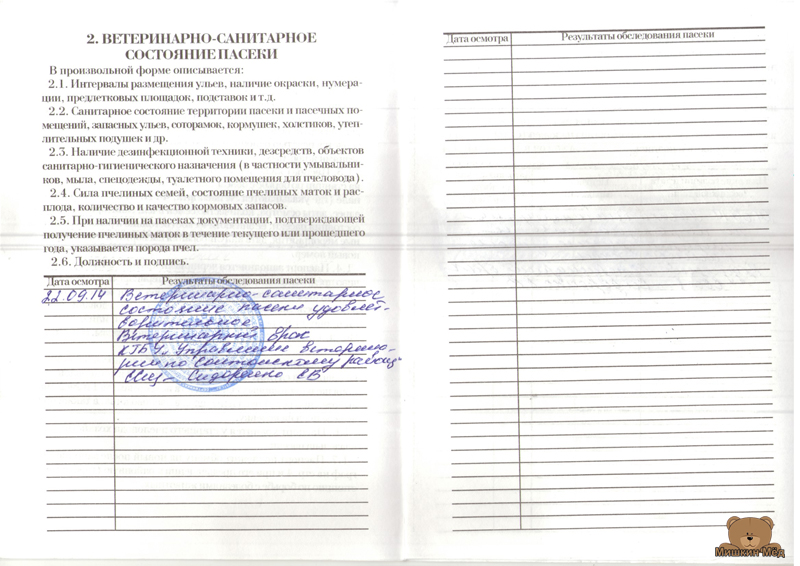 2. ВЕТЕРИНАРНО-САНИТАРНОЕ
СОСТОЯНИЕ ПАСЕКИ
В произвольной форме описывается:
2.1. Интервалы размещения ульев, наличие окраски, нумера-
ции, предлетковых площадок, подставок и т.д.
2.2. Санитарное состояние территории пасеки и пасечных по-
мещений, запасных ульев, соторамок, кормушек, холстиков, утеп-
лительных подушек и др.
2.3. Наличие дезинфекционной техники, дезсредств, объектов
санитарно-гигиенического назначения (в частности умывальни-
ков, мыла, спецодежды, туалетного помещения для пчеловода).
2.4. Сила пчелиных семей, состояние пчелиных маток и рас-
плода, количество и качество кормовых запасов.
2.5. При наличии на пасеках документации, подтверждающей
получение пчелиных маток в течение текущего или прошедшего
года, указывается порода пчел.
2.6. Должность и подпись.
Дата осмотра Результаты обследования пасеки
22.09.14 Ветеринарно-санитарное
состояние пасеки удовлет-
ворительное
Ветеринарный врач
КГБУ "Управление ветерина-
рии по Солтонскому району"
Сидоренко СВ
Дата осмотра Результаты обследования пасеки
Мишкин Мёд